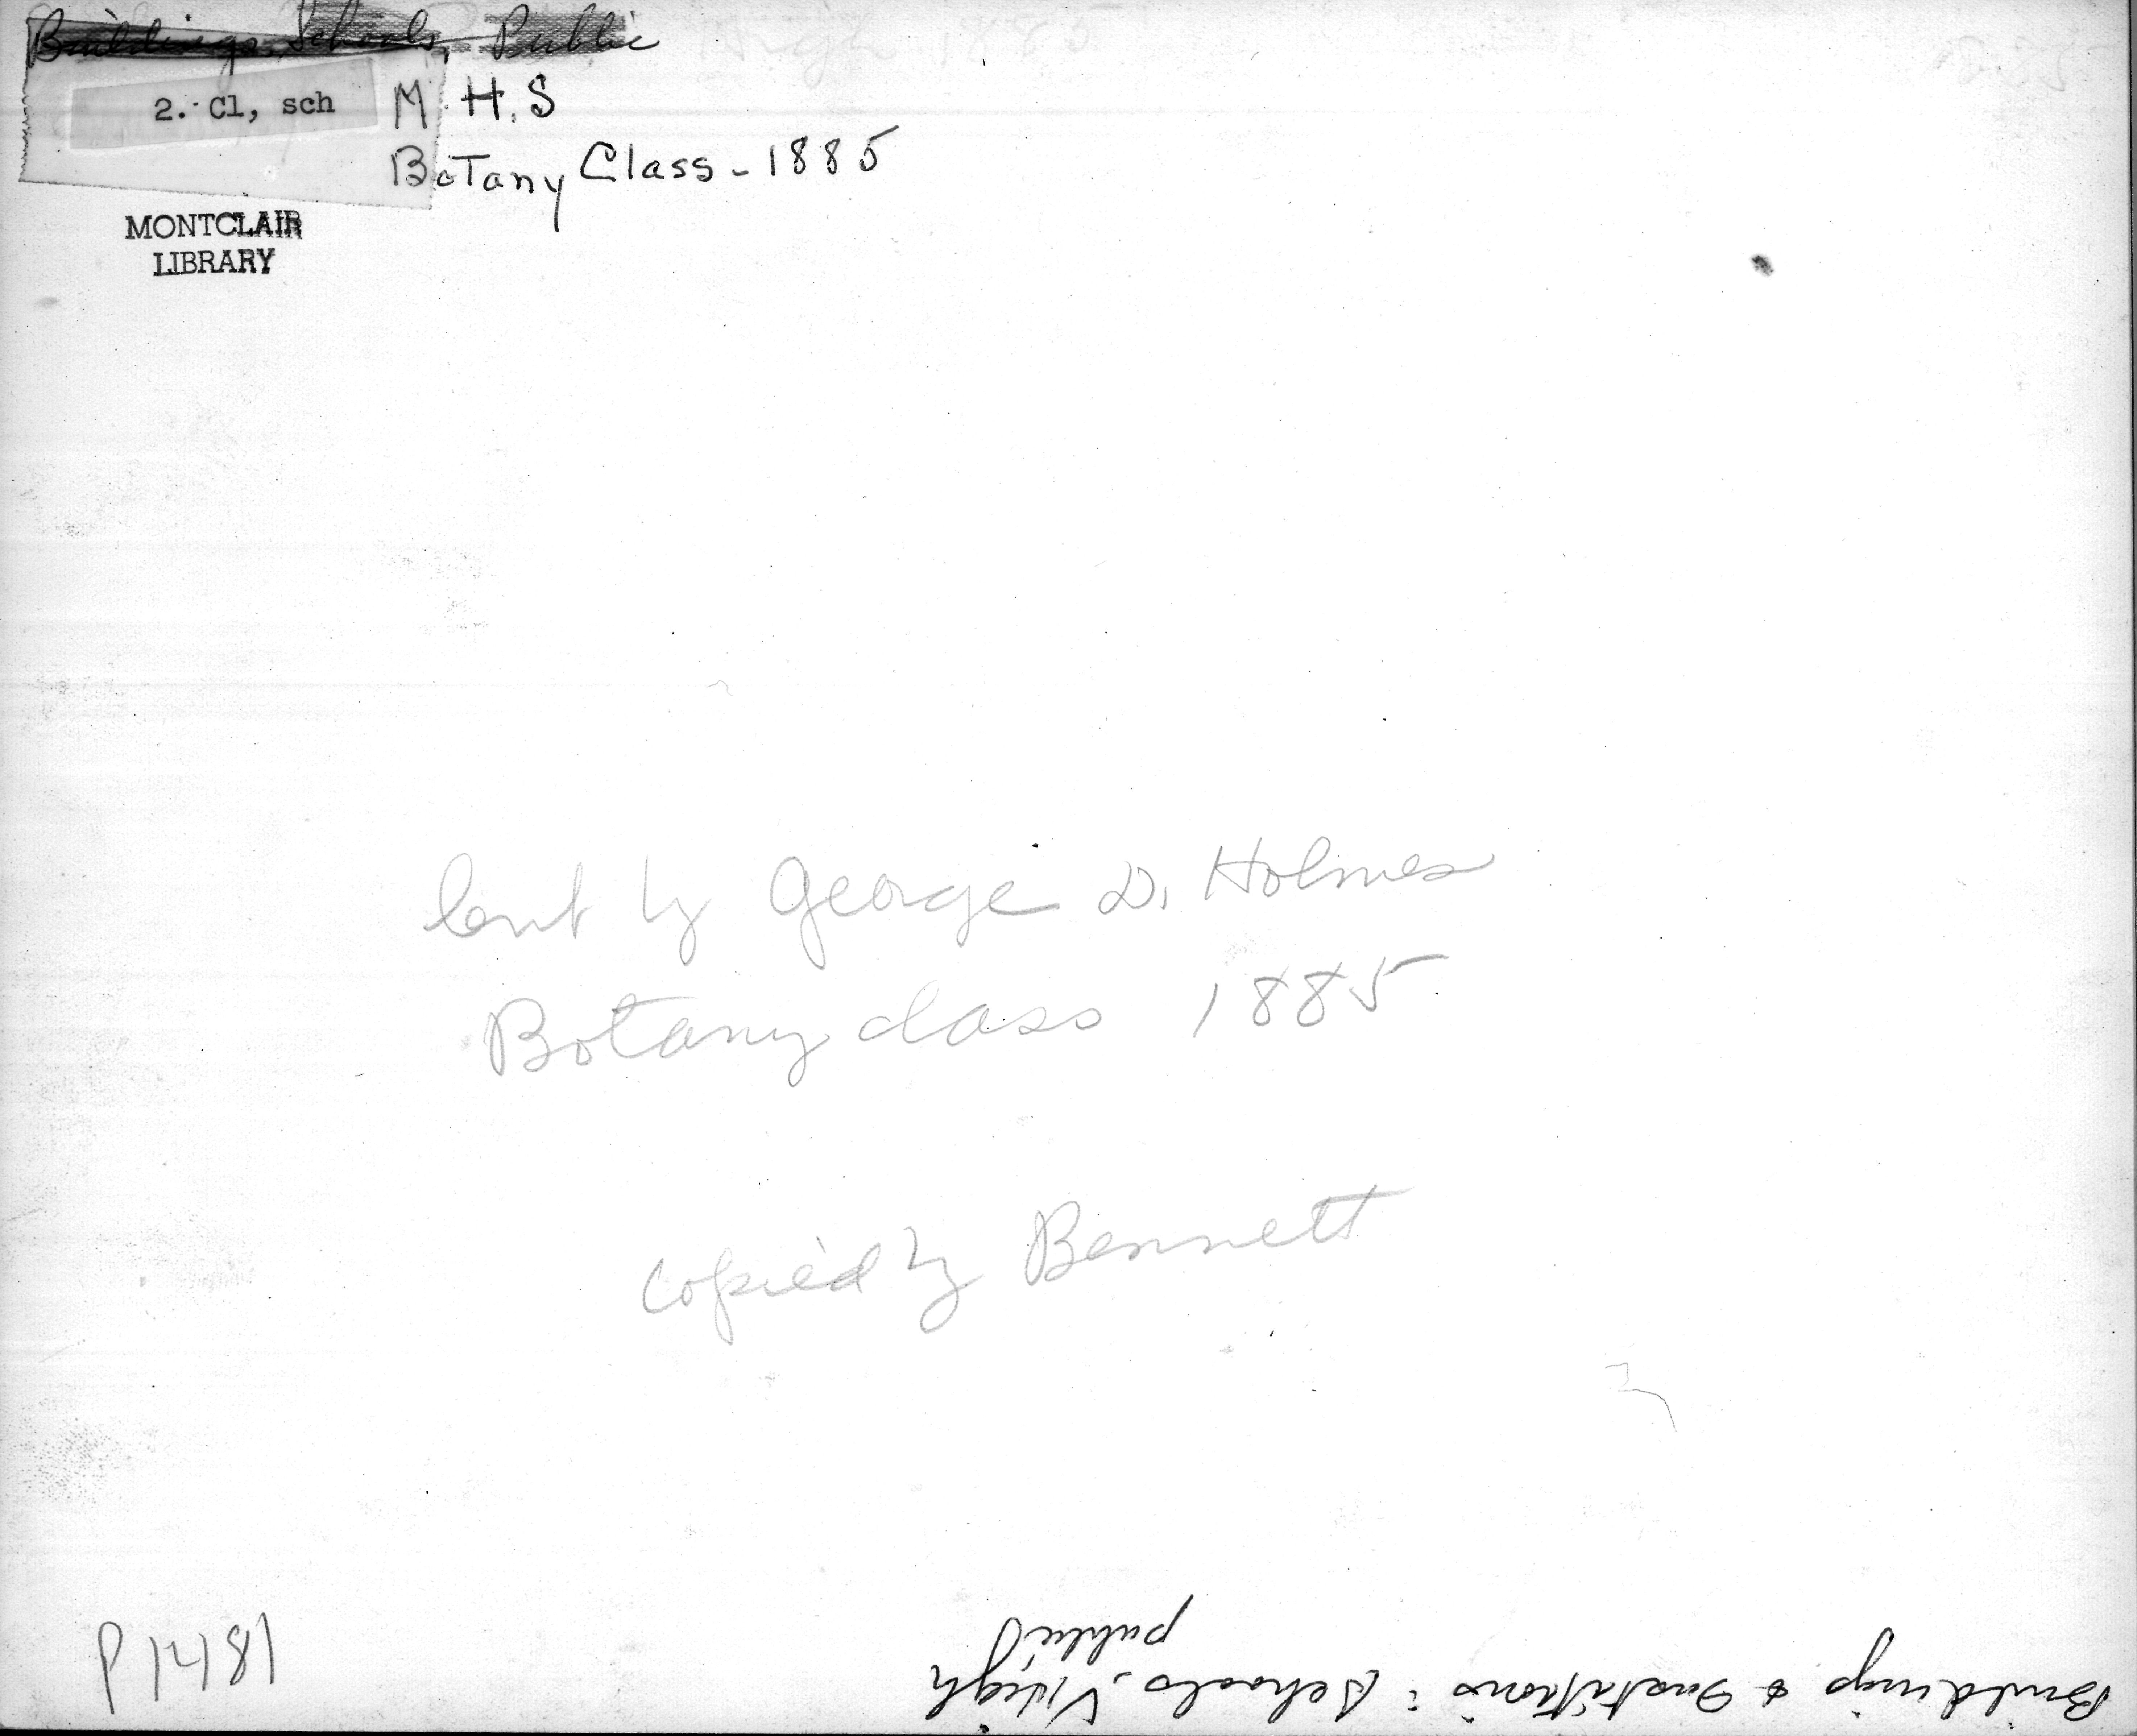 Buildings, Schools, Public
2. Cl, sch
M.H.S
Botany Class - 1885
MONTCLAIR
LIBRARY
lent by George D. Holmes
Botany class 1885
copied by Bennett
P1481
Buildings & Institutions: Schools, High
public